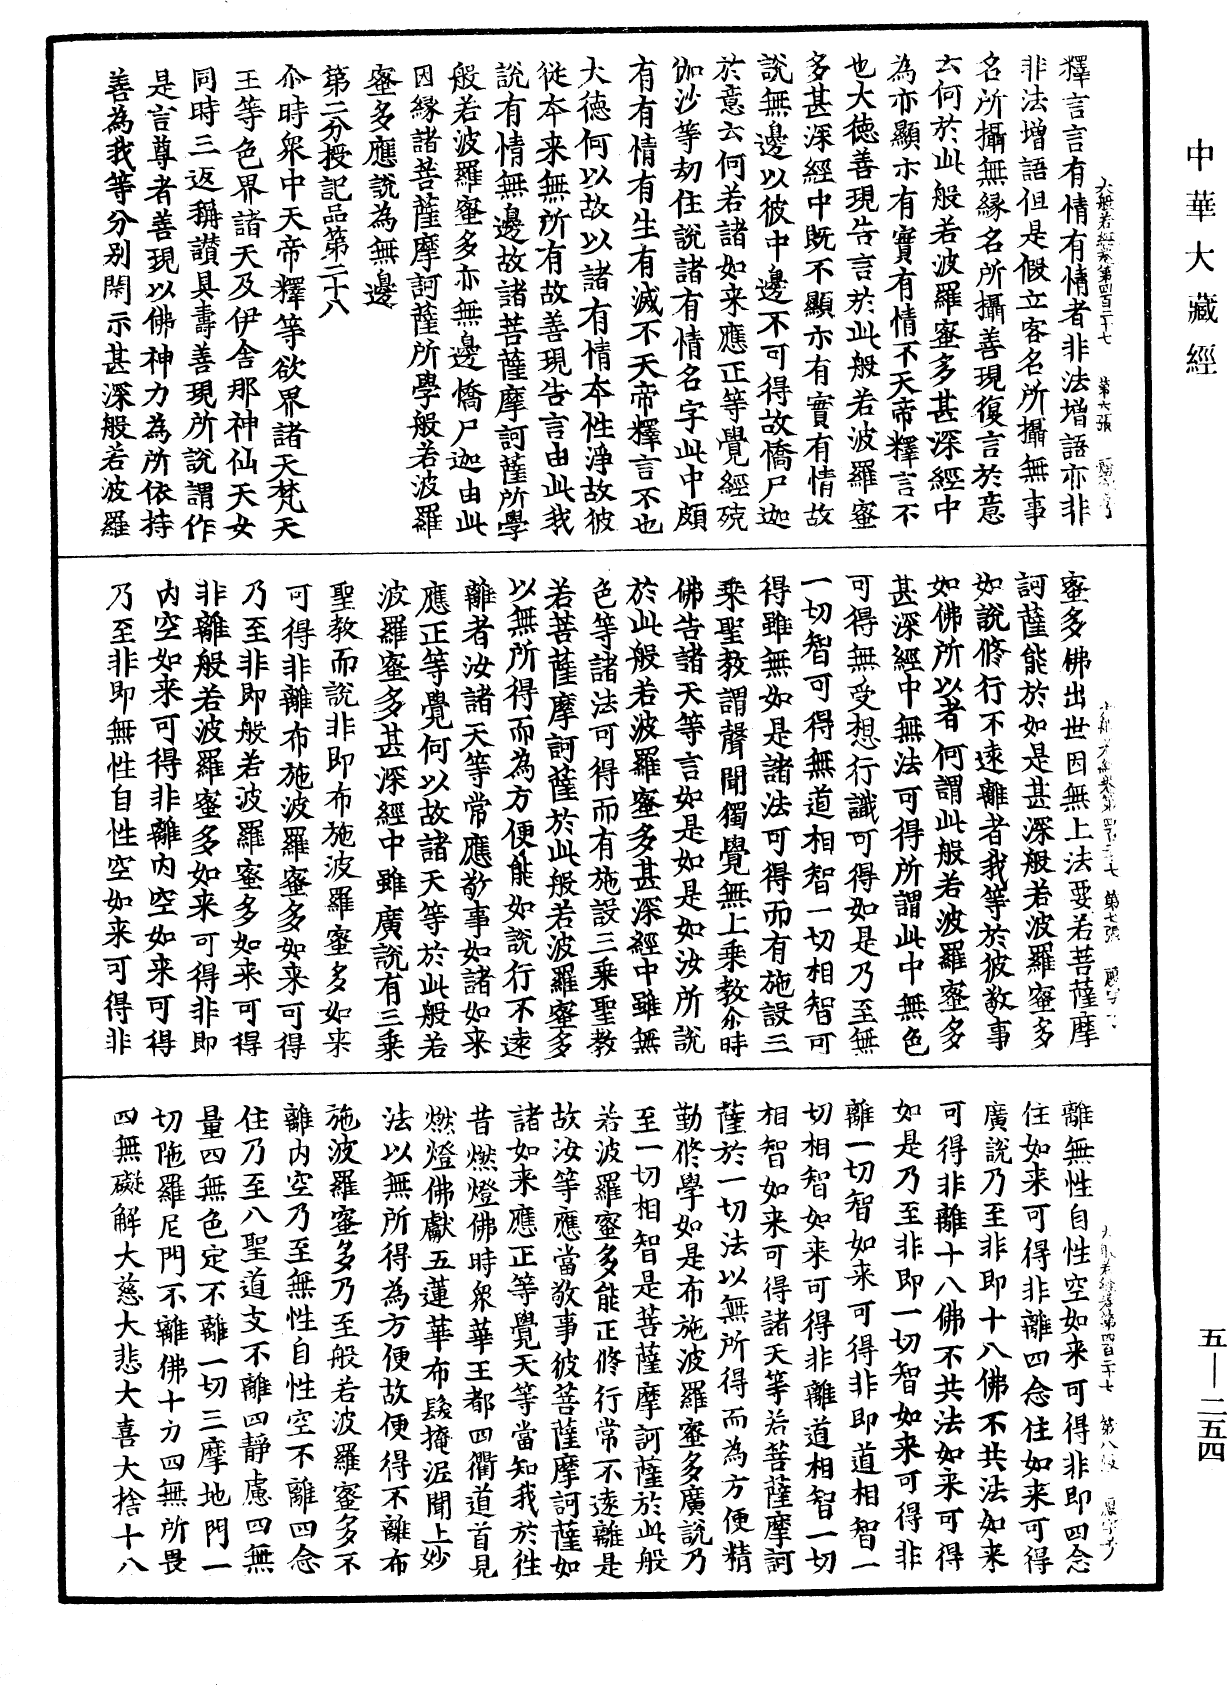 中華大藏經
釋言言有情有情者非法增語亦非
非法增語但是假立客名所攝無事
名所攝無緣名所攝善現復言於意
云何於此般若波羅蜜多甚深經中
為亦顯示有實有情不天帝釋言不
也大德善現告言於此般若波羅蜜
多甚深經中既不顯示有實有情故
說無邊以彼中邊不可得故憍尸迦
於意云何若諸如来應正等覺經殑
伽沙等劫住說諸有情名字此中頗
有有情有生有滅不天帝釋言不也
大德何以故以諸有情本性淨故彼
從本来無所有故善現告言由此我
說有情無邊故諸菩薩摩訶薩所學
般若波羅蜜多亦無邊憍尸迦由此
因緣諸菩薩摩訶薩所學般若波羅
蜜多應說為無邊
第二分授記品第二十八
尒時眾中天帝釋等欲界諸天梵天
王等色界諸天及伊舍那神仙天女
同時三返稱讚具壽善現所說謂作
是言尊者善現以佛神力為所依持
善為我等分別開示甚深般若波羅
大般若經卷第四百二十七 第六張
蜜多佛出世因無上法要若菩薩摩
訶薩能於如是甚深般若波羅蜜多
如說修行不遠離者我等於彼敬事
如佛所以者何謂此般若波羅蜜多
甚深經中無法可得所謂此中無色
可得無受想行識可得如是乃至無
一切智可得無道相智一切相智可
得雖無如是諸法可得而有施設三
乘聖教謂聲聞獨覺無上乘教尒時
佛告諸天等言如是如是如汝所說
於此般若波羅蜜多甚深經中雖無
色等諸法可得而有施設三乘聖教
若菩薩摩訶薩於此般若波羅蜜多
以無所得而為方便能如說行不遠
離者汝諸天等常應敬事如諸如来
應正等覺何以故諸天等於此般若
波羅蜜多甚深經中雖廣說有三乘
聖教而說非即布施波羅蜜多如来
可得非離布施波羅蜜多如来可得
乃至非即般若波羅蜜多如来可得
非離般若波羅蜜多如来可得非即
內空如来可得非離內空如来可得
乃至非即無性自性空如来可得非
第七張
離無性自性空如来可得非即四念
住如来可得非離四念住如来可得
廣說乃至非即十八佛不共法如来
可得非離十八佛不共法如来可得
如是乃至非即一切智如来可得非
離一切智如来可得非即道相智一
切相智如来可得非離道相智一切
相智如来可得諸天等若菩薩摩訶
薩於一切法以無所得而為方便精
勤修學如是布施波羅蜜多廣說乃
至一切相智是菩薩摩訶薩於此般
若波羅蜜多能正修行常不遠離是
故汝等應當敬事彼菩薩摩訶薩如
諸如来應正等覺天等當知我於往
昔燃燈佛時眾華王都四衢道首見
燃燈佛獻五蓮華布髮掩泥聞上妙
法以無所得為方便故便得不離布
施波羅蜜多乃至般若波羅蜜多不
離內空乃至無性自性空不離四念
住乃至八聖道支不離四靜慮四無
量四無色定不離一切三摩地門一
切陁羅尼門不離佛十力四無所畏
四無礙解大慈大悲大喜大捨十八
第八張
五—二五四